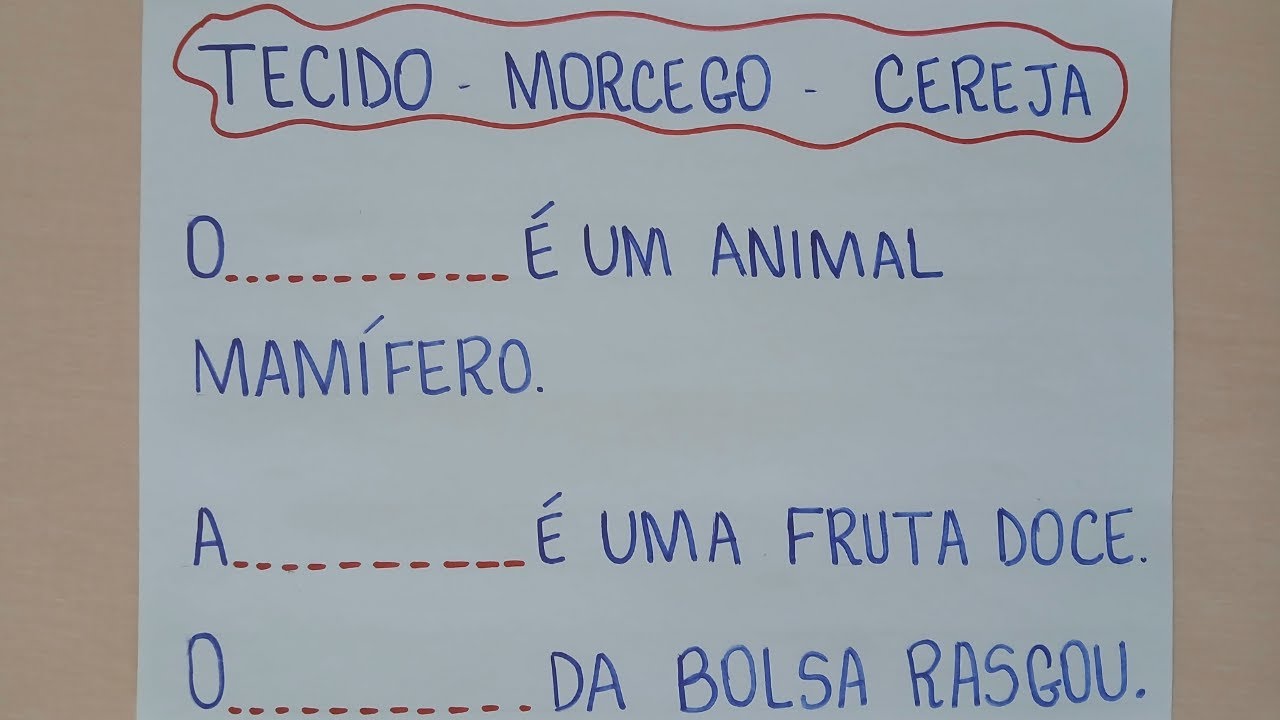 TECIDO - MORCEGO - CEREJA
O........... É UM ANIMAL
MAMÍFERO.
A........... É UMA FRUTA DOCE.
O........... DA BOLSA RASGOU.